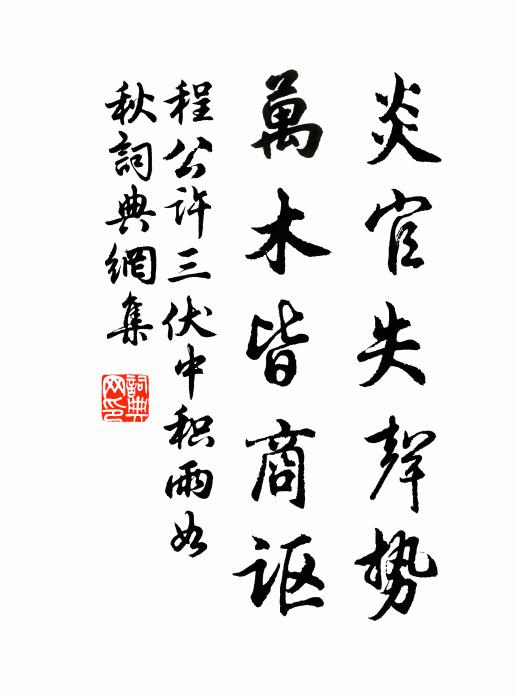 炎官失聲勢
萬木皆商讴
程公许三伏中积雨如
秋詞典網集
詞典网印